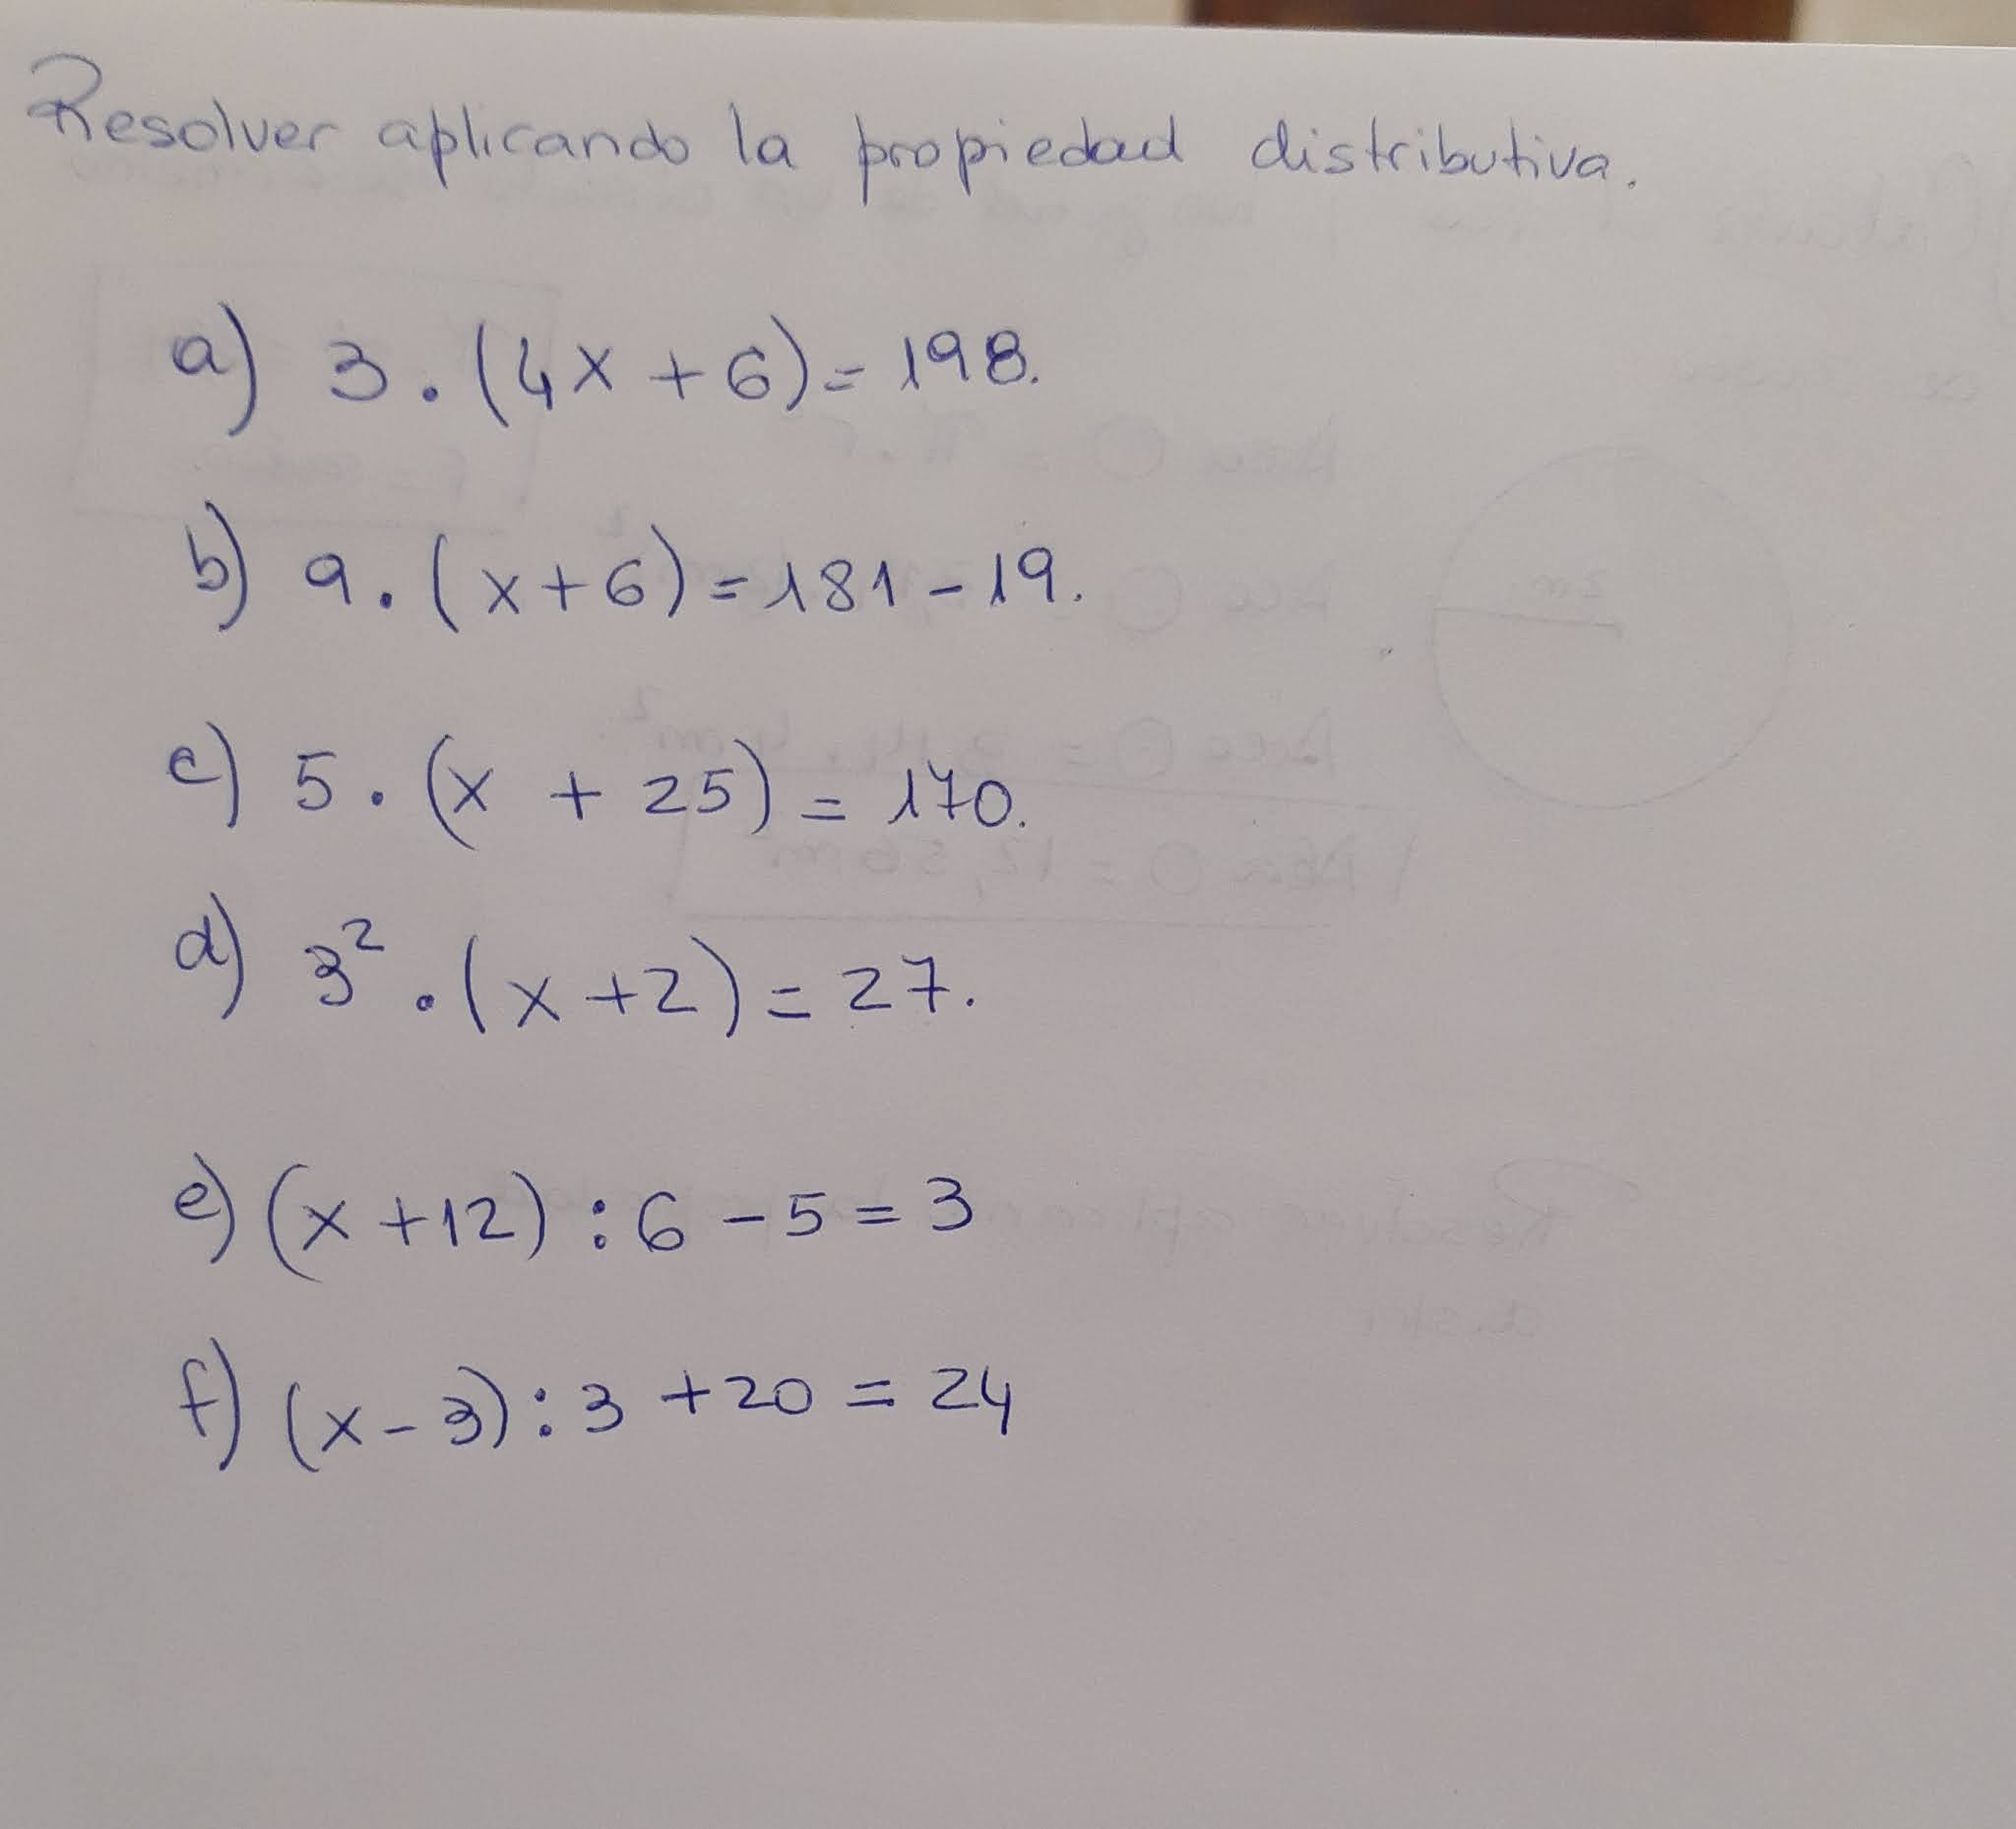 Resolver aplicando la propiedad distributiva.
a) 3 . (4x + 6) = 198.
b) 9 . (x + 6) = 181 - 19.
c) 5 . (x + 25) = 170.
d) 3² . (x + 2) = 27.
e) (x + 12) : 6 - 5 = 3
f) (x - 3) : 3 + 20 = 24